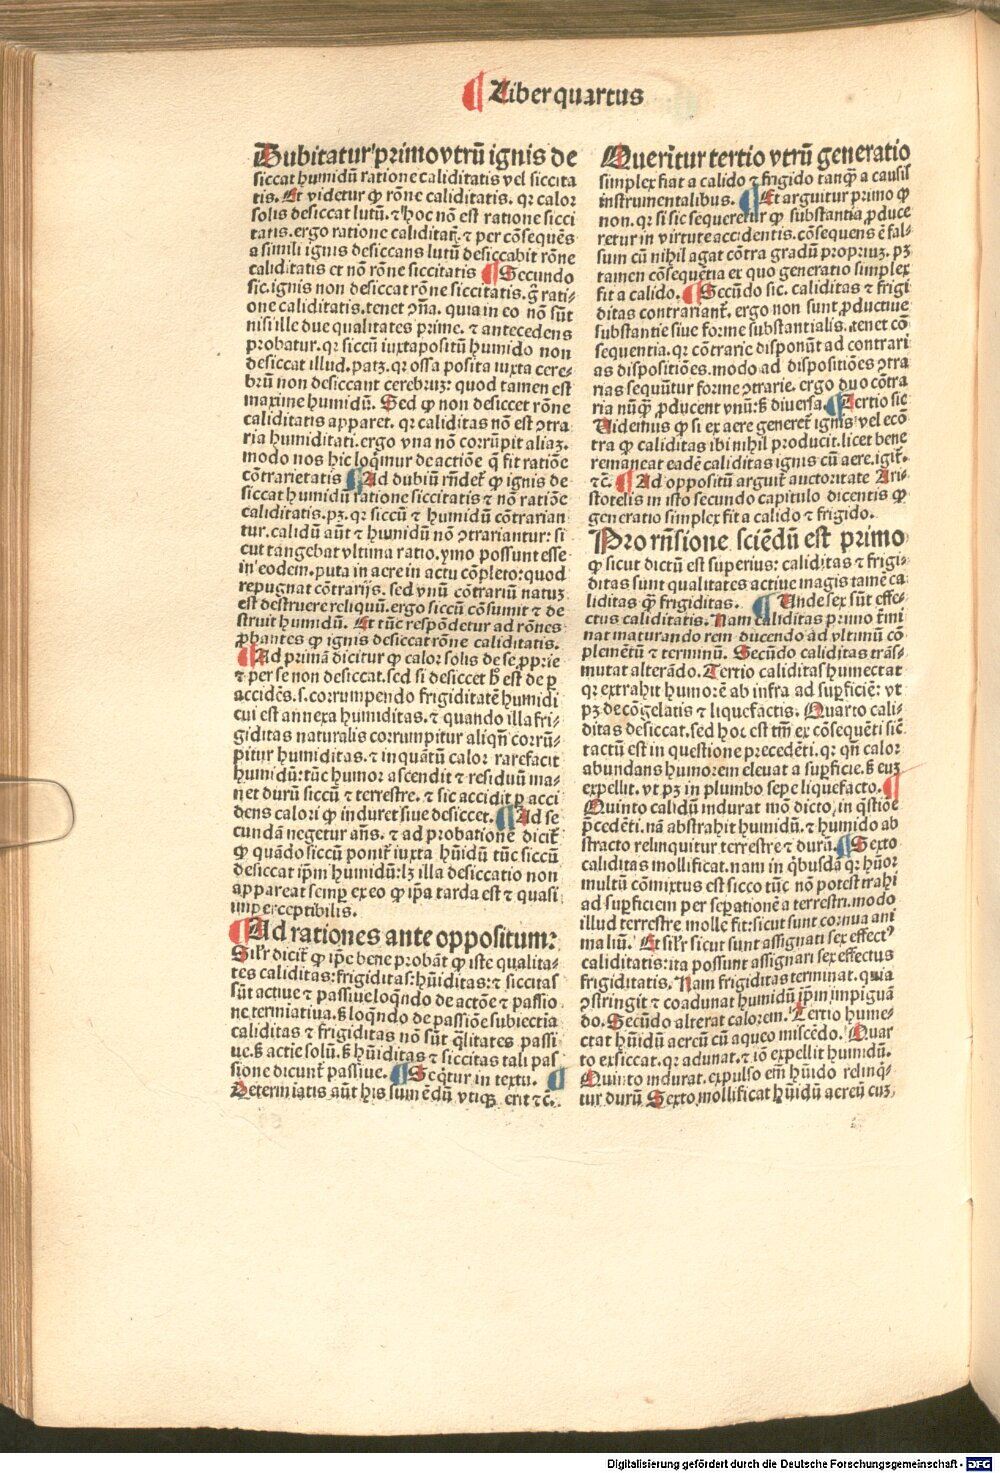 ¶ Liber quartus
Dubitatur primo vtrū ignis de
siccat humidū ratione caliditatis vel siccita
tis. Et videtur ꝙ rōne caliditatis. qꝛ calor
solis desiccat lutū. ⁊ hoc nō est ratione sicci
tatis. ergo ratione caliditatꝭ. ⁊ per cōsequēs
a simili ignis desiccans lutū desiccabit rōne
caliditatis et nō rōne siccitatis ¶ Secundo
sic. ignis non desiccat rōne siccitatis. g̊ rati⸗
one caliditatis. tenet ꝯña. quia in eo nō sūt
nisi ille due qualitates prime. ⁊ antecedens
probatur. qꝛ siccū iuxtapositū humido non
desiccat illud. patꝫ. qꝛ ossa posita iuxta cere⸗
brū non desiccant cerebruꝫ: quod tamen est
maxime humidū. Sed ꝙ non desiccet rōne
caliditatis apparet. qꝛ caliditas nō est ꝯtra
ria humiditati. ergo vna nō corrūpit aliaꝫ.
modo nos hic loqͥmur de actiōe q̄ fit ratiōe
cōtrarietatis ¶ Ad dubiū rñdet͛ ꝙ ignis de
siccat humidū ratione siccitatis ⁊ nō ratiōe
caliditatis. pꝫ. qꝛ siccū ⁊ humidū cōtrarian
tur. calidū aūt ⁊ humidū nō ꝯtrariantur: si
cut tangebat vltima ratio. ymo possunt esse
in eodem. puta in aere in actu cōpleto: quod
repugnat cōtrarijs. sed vnū cōtrariū natuꝫ
est destruere reliquū. ergo siccū cōsumit ⁊ de
struit humidū. Et tūc respōdetur ad rōnes
ꝓbantes ꝙ ignis desiccat rōne caliditatis.
¶ Ad primā dicitur ꝙ calor solis de se ꝓprie
⁊ per se non desiccat. sed si desiccet h̄ est de ꝑ
accidēs. s. corrumpendo frigiditatē humidi
cui est annexa humiditas. ⁊ quando illa fri⸗
giditas naturalis corrumpitur aliqñ corrū⸗
pitur humiditas. ⁊ inquātū calor rarefacit
humidū: tūc humor ascendit ⁊ residuū ma⸗
net durū siccū ⁊ terrestre. ⁊ sic accidit ꝑ acci
dens calori ꝙ induret siue desiccet. ¶ Ad se
cundā negetur añs. ⁊ ad probationē dicit͛
ꝙ quādo siccū ponit͛ iuxta hūidū tūc siccū
desiccat ip̄m humidū: lꝫ illa desiccatio non
appareat semꝑ ex eo ꝙ ip̄a tarda est ⁊ quasi
imperceptibilis.
¶ Ad rationes ante oppositum:
Sil̓r dicit͛ ꝙ ip̄e bene probāt ꝙ iste qualita⸗
tes caliditas: frigiditas: hūiditas: ⁊ siccitas
sūt actiue ⁊ passiue loqn̄do de actōe ⁊ passio
ne termiatiua. ẜ loqn̄do de passiōe subiectia
caliditas ⁊ frigiditas nō sūt q̄litates passi
ue. ẜ actie solū. ẜ hūiditas ⁊ siccitas tali pas
sione dicunt͛ passiue. ¶ Seqͥtur in textu. ¶
Determiatis aūt his sumēdū vtiqꝫ erit ⁊c̄.
Querit͛ur tertio vtrū generatio
simplex fiat a calido ⁊ frigido tanqꝫ a causis
instrumentalibus. ¶ Et arguitur primo ꝙ
non. qꝛ si sic sequeretur ꝙ substantia ꝓduce
retur in virtute accidentis. cōsequens ē fal⸗
sum cū nihil agat cōtra gradū propriuꝫ. pꝫ
tamen cōsequētia ex quo generatio simplex
fit a calido. ¶ Secūdo sic. caliditas ⁊ frigi
ditas contrariant͛. ergo non sunt ꝓductiue
substantie siue forme substantialis. tenet cō
sequentia. qꝛ cōtrarie disponūt ad contrari
as dispositiōes. modo ad dispositiōes ꝯtra
rias sequūtur forme ꝯtrarie. ergo duo cōtra
ria nūqꝫ ꝓducent vnū: ẜ diuersa. ¶ Tertio sic
Uidemus ꝙ si ex aere generet͛ ignis vel ecō
tra ꝙ caliditas ibi nihil producit. licet bene
remaneat eadē caliditas ignis cū aere. igit͛.
⁊c̄. ¶ Ad oppositū arguit͛ auctoritate Ari⸗
stotelis in isto secundo capitulo dicentis ꝙ
generatio simplex fit a calido ⁊ frigido.
Pro rñsione sciēdū est primo
ꝙ sicut dictū est superius: caliditas ⁊ frigi⸗
ditas sunt qualitates actiue magis tamē ca
liditas qꝫ frigiditas. ¶ Unde sex sūt effe⸗
ctus caliditatis. Nam caliditas primo t͛mi
nat maturando rem ducendo ad vltimū cō
plemētū ⁊ terminū. Secūdo caliditas trās⸗
mutat alterādo. Tertio caliditas humectat
qꝛ extrahit humorē ab infra ad suꝑficiē: vt
pꝫ de cōgelatis ⁊ liquefactis. Quarto cali⸗
ditas desiccat. sed hoc est tm̄ ex cōsequēti sic̄
tactū est in questione precedēti. qꝛ qñ calor
abundans humorem eleuat a suꝑficie. ẜ euꝫ
expellit. vt pꝫ in plumbo sepe liquefacto. ¶
Quinto calidū indurat mō dicto in q̄stiōe
p̄cedēti. nā abstrahit humidū. ⁊ humido ab
stracto relinquitur terrestre ⁊ durū. ¶ Sexto
caliditas mollificat. nam in qͥbusdā qꝛ hūor
multū cōmixtus est sicco tūc nō potest trahi
ad suꝑficiem per seꝑationē a terrestri. modo
illud terrestre molle fit: sicut sunt cornua ani
maliū. Et sil̓r sicut sunt assignati sex effectꝰ
caliditatis: ita possunt assignari sex effectus
frigiditatis. Nam frigiditas terminat. quia
ꝯstringit ⁊ coadunat humidū ip̄m impiguā
do. Secūdo alterat calorem. Tertio hume⸗
ctat hūidū aereū cū aqueo miscēdo. Quar
to exsiccat. qꝛ adunat. ⁊ iō expellit humidū.
Quinto indurat. expulso em̄ hūido relinqͥ⸗
tur durū Sexto mollificat hūidū aereū cuꝫ
Digitalisierung gefördert durch die Deutsche Forschungsgemeinschaft - DFG